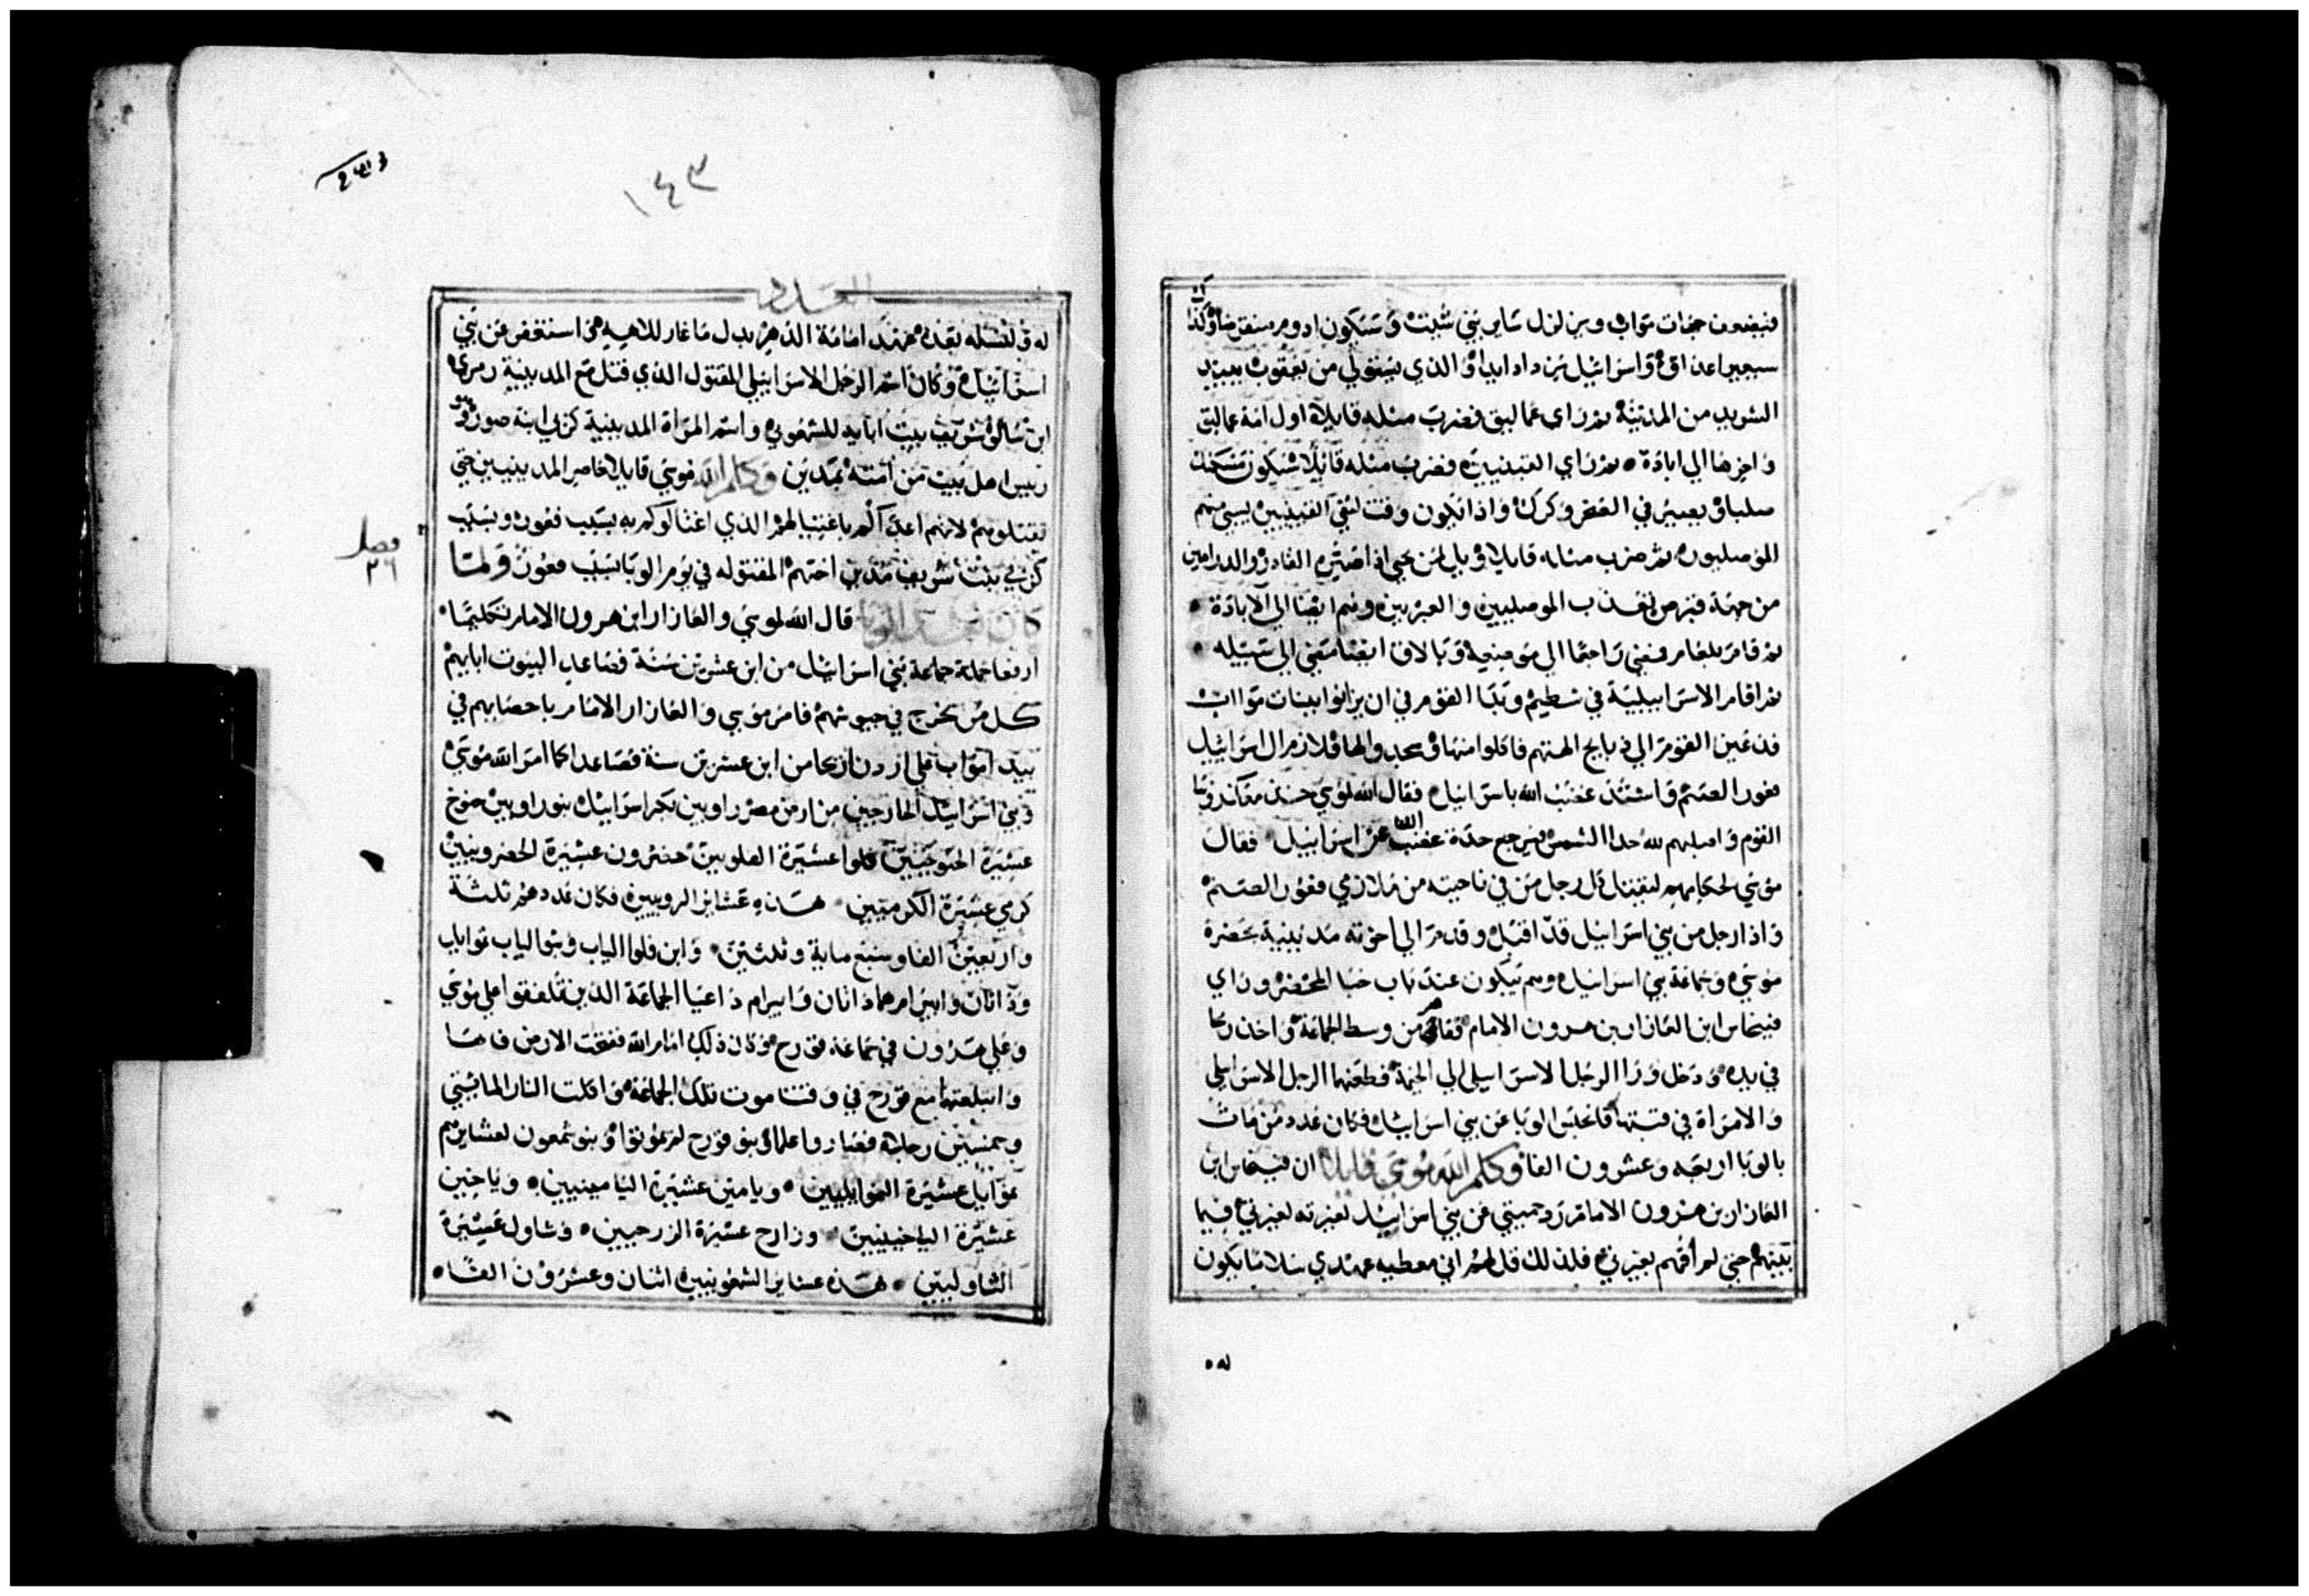 فيفيدون جهات مواب وبزلزل ساير بني شيت وستكون ادوم منقرضا وكذا
سيعير اعداوه واسراييل يزداد ايدا والذي يستولي من يعقوب يبيد
الشريد من المدينة ثم راي عماليق فضرب مثله قايلا اول امة عماليق
واخرها الي ابادة ثم راي القينيين فضرب مثله قايلا سيكون مسكنك
صلبا ويصير في الصخر وكرك واذا تكون وقت لنفي القينيين يسبي منهم
الموصليون ثم ضرب مثله قايلا ويل لمن يحيي اذا صيره القادر والد
من جهة قبرص تعذب الموصليين والعبريين وهم ايضا الي الابادة
ثم قام بلعام فمضي راجعا الي موضعه وبالاق ايضا مضي الي سبيله
ثم اقام الاسراييلية في شطيم وبدا القوم في ان يزنوا ببنات مواب
فدعين القوم الي ذبايح الهتهم فاكلوا منها وسجدوا لها ولازم ال اسراييل
فعور الصنم فاشتد غضب الله باسراييل فقال الله لموسي خذ معك رؤسا
القوم واصلبهم لله حذا الشمس يرجع حدة غضب الله عن اسراييل فقال
موسي لحكامهم ليقتل كل رجل من في ناحيته من ملازمي فعور الصنم
واذا رجل من بني اسراييل قد اقبل وقدم الي اخوته مدينية بحضرة
موسي وجماعة بني اسراييل وهم يبكون عند باب خبا المحضر وراي
فينحاس ابن العازار بن هرون الامام فقام من وسط الجماعة واخذ رمحا
في يده ودخل ورا الرجل الاسراييلي الي الخيمة فطعنهما الرجل الاسراييلي
والامراة في قبتها فانحبس الوبا عن بني اسراييل فكان عدد من مات
بالوبا اربعه وعشرون الفا وكلم الله موسي قايلا ان فينحاس ابن
العازار بن هرون الامام رد حميتي عن بني اسراييل بغيرته لغيرتي فيما
بينهم حتي لم افهم بغيرتي فلذلك قل لهم اني معطيه عهدي سلاما يكون
له
١٤٣
العدد
له ولنسله بعده عهد امامة الدهر بدل ما غار لالاهه واستغفر عن بني
اسراييل وكان اسم الرجل الاسراييلي المقتول الذي قتل مع المدينية زمري
ابن سالو شريف بيت ابايه للشمعوني واسم المراة المدينية كزبي ابنة صور وهو
رييس اهل بيت من امته بمدين وكلم الله موسي قايلا حاصر المدينيين حتي
تقتلوهم لانهم اعدا لكم باغتيالهم الذي اغتالوكم به بسبب فعور وبسبب
كزبي بنت شريف مدين اختهم المقتوله في يوم الوبا بسبب فعور ولما
فصل
٢٦
كان بعد الوبا قال الله لموسي والعازار ابن هرون الامام تكليما
ارفعا جملة جماعة بني اسراييل من ابن عشرين سنة فصاعدا لبيوت ابايهم
كل من يخرج في جيوشهم فامر موسي والعازار الامام باحصايهم في
بيدا مواب علي اردن اريحا من ابن عشرين سنة فصاعدا كما امر الله موسي
وبني اسراييل الخارجين من ارض مصر راوبين بكر اسراييل بنو راوبين حنوخ
عشيرة الحنوخيين فلوا عشيرة الفلويين حصرون عشيرة الحصرونيين
كرمي عشيرة الكرميين هذه عشاير الروبيين فكان عددهم ثلثة
واربعين الفا وسبع ماية وثلثين وابن فلوا الياب وبنوا الياب نموايل
وداثان وابيرام هما داثان وابيرام داعيا الجماعة الذين تلفقوا علي موسي
وعلي هرون في جماعة قورح وكان ذلك امام الله ففتحت الارض فاها
وابتلعتهما مع قورح في وقت موت تلك الجماعة واكلت النار المايتي
وخمسين رجلا فصاروا علما وبنو قورح لم يموتوا وبنو شمعون لعشايرهم
نموايل عشيرة النموايليين ويامين عشيرة اليامينيين وياخين
عشيرة الياخينيين وزارح عشيرة الزرحيين وشاول عشيرة
الشاوليين هذه عشاير الشمعونيين اثنان وعشرون الفا